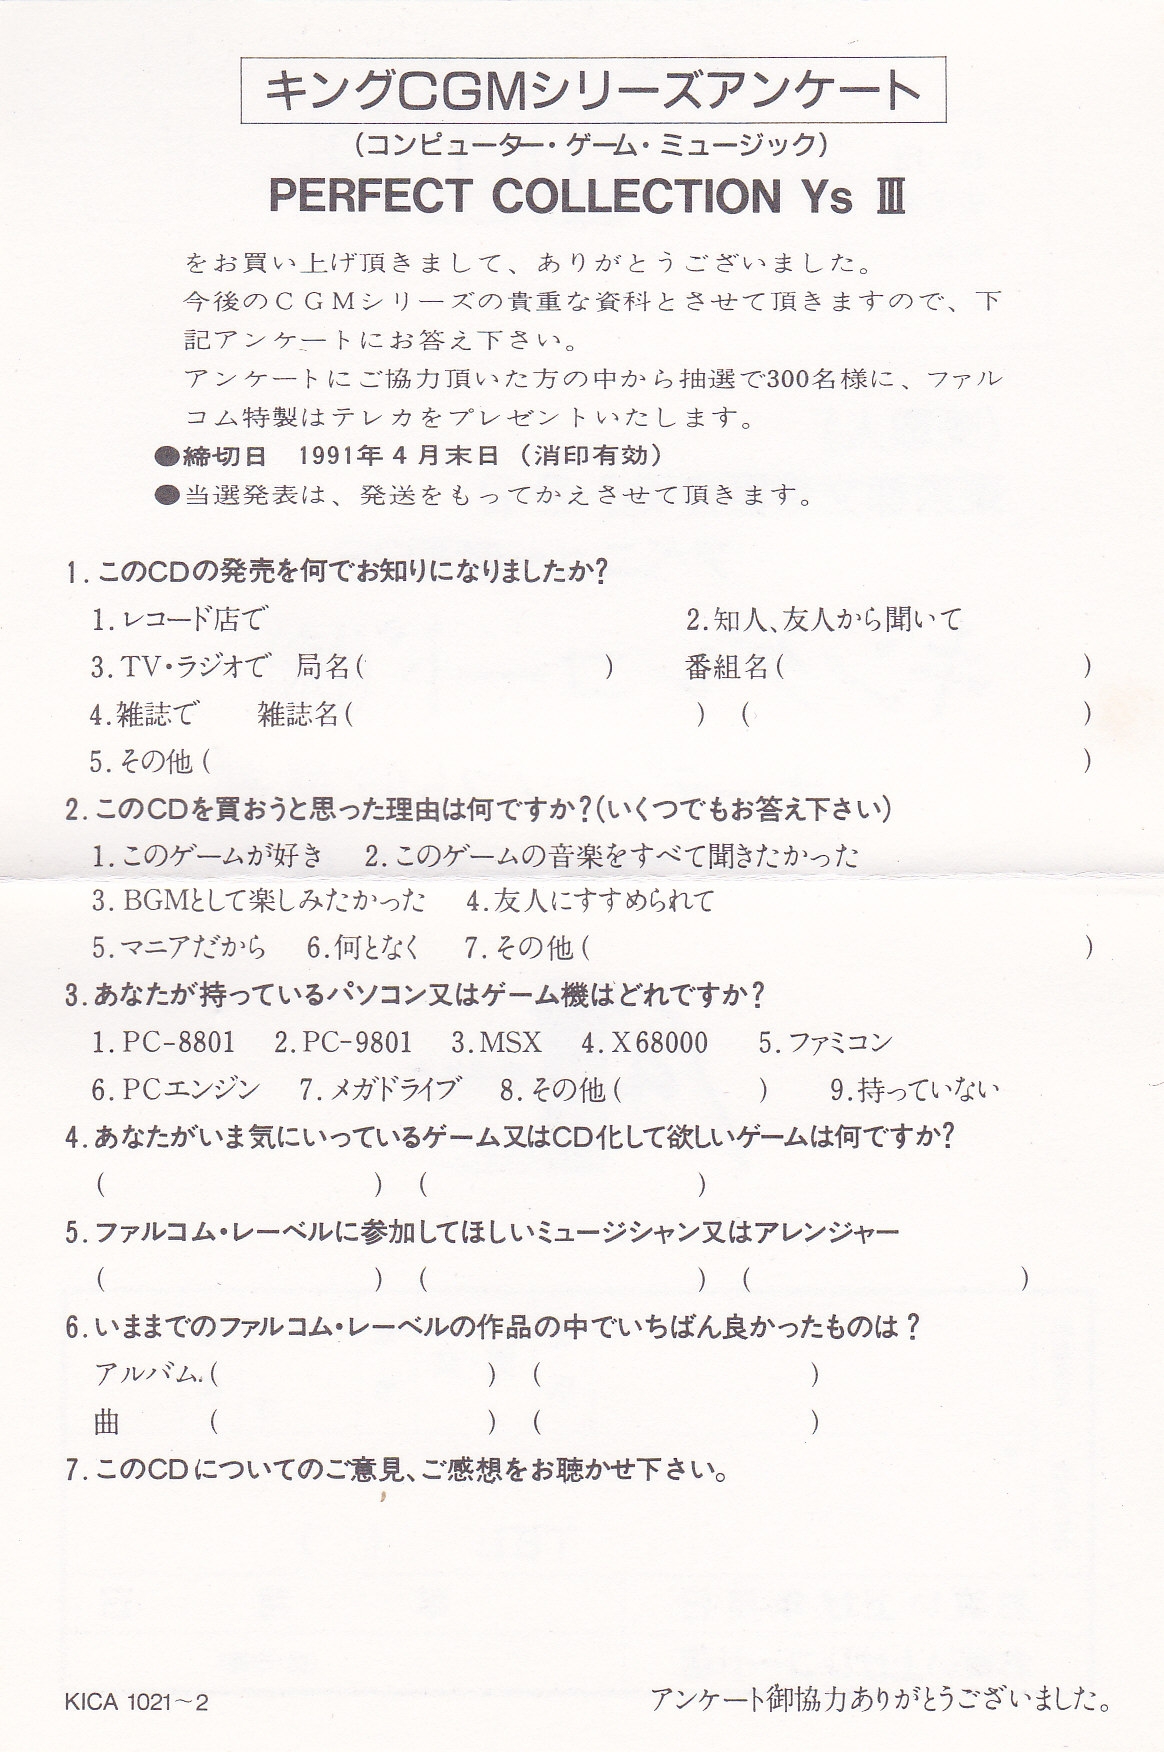 キングCGMシリーズアンケート
(コンピューター・ゲーム・ミュージック)
PERFECT COLLECTION Ys Ⅲ
をお買い上げ頂きまして、ありがとうございました。
今後のCGMシリーズの貴重な資科とさせて頂きますので、下
記アンケートにお答え下さい。
アンケートにご協力頂いた方の中から抽選で300名様に、ファル
コム特製はテレカをプレゼントいたします。
●締切日 1991年4月末日(消印有効)
●当選発表は、発送をもってかえさせて頂きます。
1. このCDの発売を何でお知りになりましたか?
1. レコード店で 2. 知人、友人から聞いて
3. TV・ラジオで 局名( ) 番組名( )
4. 雑誌で 雑誌名( ) ( )
5. その他( )
2. このCDを買おうと思った理由は何ですか?(いくつでもお答え下さい)
1. このゲームが好き 2. このゲームの音楽をすべて聞きたかった
3. BGMとして楽しみたかった 4. 友人にすすめられて
5. マニアだから 6. 何となく 7. その他( )
3. あなたが持っているパソコン又はゲーム機はどれですか?
1. PC-8801 2. PC-9801 3. MSX 4. X68000 5. ファミコン
6. PCエンジン 7. メガドライブ 8. その他( ) 9. 持っていない
4. あなたがいま気にいっているゲーム又はCD化して欲しいゲームは何ですか?
( ) ( )
5. ファルコム・レーベルに参加してほしいミュージシャン又はアレンジャー
( ) ( ) ( )
6. いままでのファルコム・レーベルの作品の中でいちばん良かったものは?
アルバム.( ) ( )
曲 ( ) ( )
7. このCDについてのご意見、ご感想をお聴かせ下さい。
KICA 1021〜2 アンケート御協力ありがとうございました。